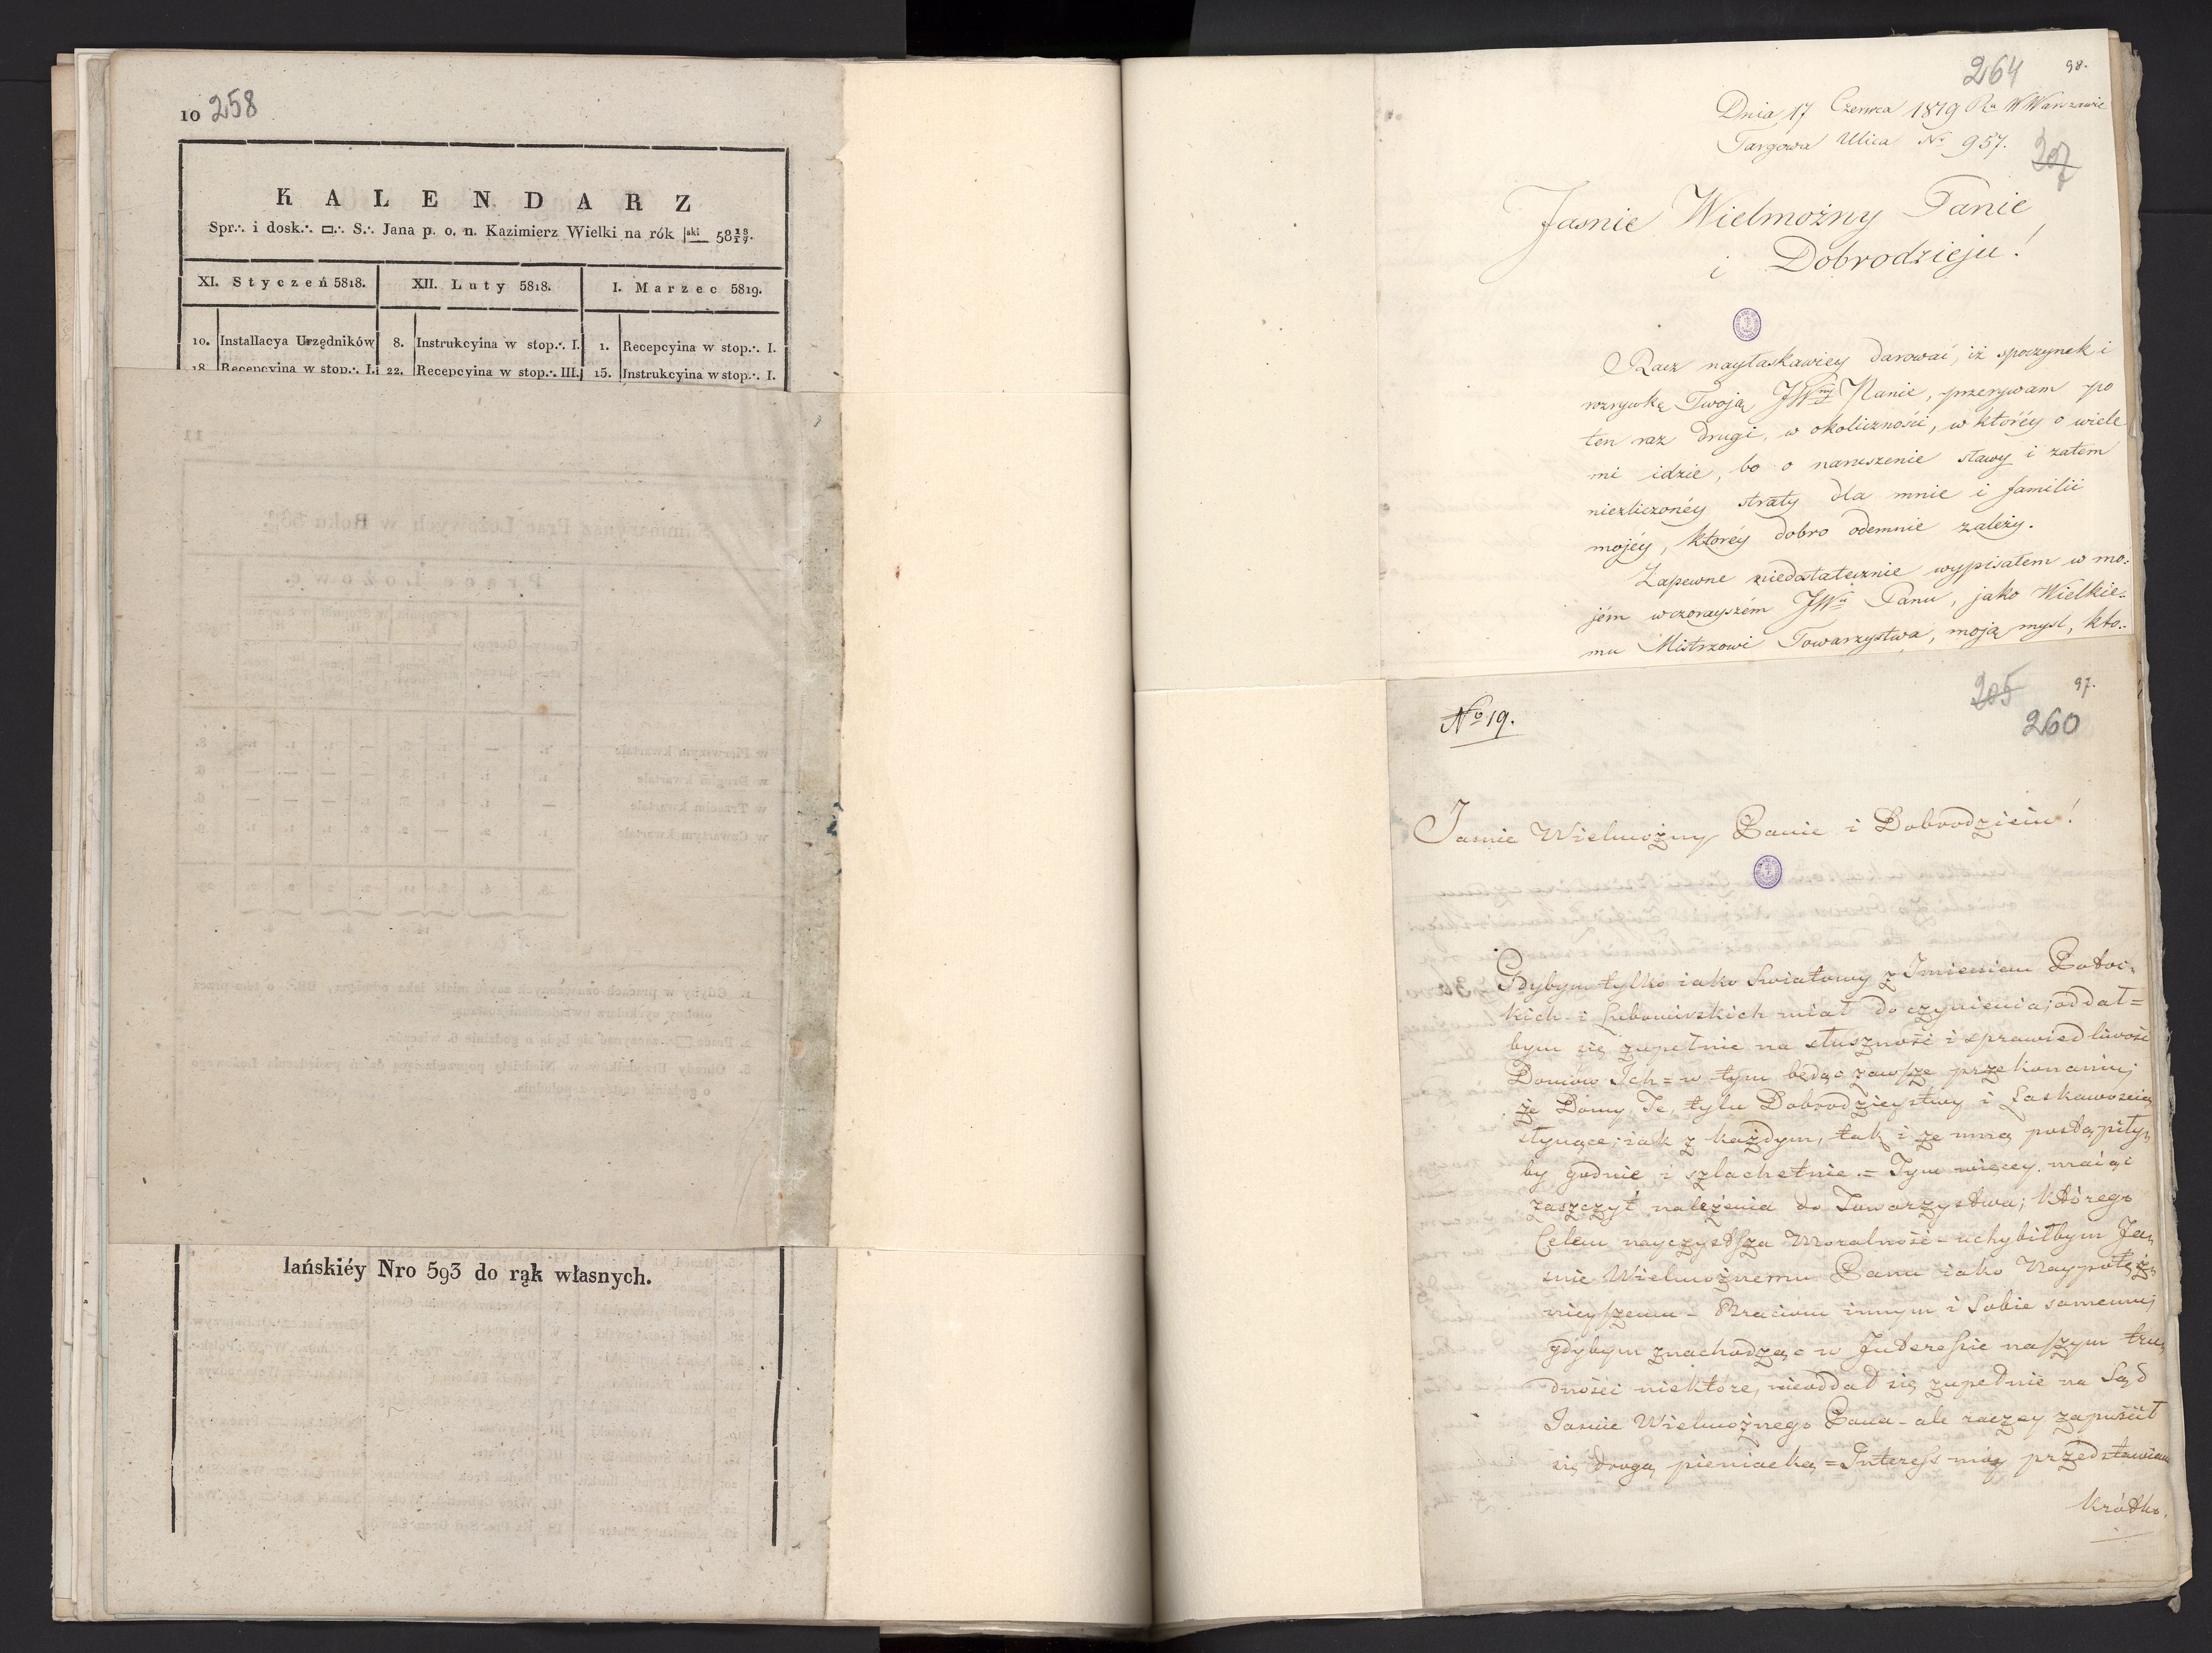 10 258
KALENDARZ
Spr∴ i dosk∴ ▭∴ S∴ Jana p. o. n. Kazimierz Wielki na rók |ski 58 18/19.
XI. Styczeń 5818. XII. Luty 5818. I. Marzec 5819.
10. Installacya Urzędników 8. Instrukcyina w stop∴ I. 1. Recepcyina w stop∴ I.
18. Recepcyina w stop∴ I. 22. Recepcyina w stop∴ III. 15. Instrukcyina w stop∴ I.
lańskiéy Nro 593 do rąk własnych.
264 98.
Dnia 17 Czerwca 1819 Ru W Warszawie
Targowa Ulica No 957.
207
Jasnie Wielmożny Panie
i Dobrodzieju!
Racz nayłaskawiey darować, iż spoczynek i
rozrywkę Twoją JWny Panie, przerywam po
ten raz drugi, w okoliczności, w któréy o wiele
mi idzie, bo o naruszenie sławy i zatem
niezliczonéy straty dla mnie i familii
mojéy, któréy dobro odemnie zależy.
Zapewne niedostatecznie wypisałem w mo:
jém wczorayszém JWu Panu, jako Wielkie:
mu Mistrzowi Towarzystwa, moją mysl, kto:
205 97.
No 19. 260
Jasnie Wielmożny Panie i Dobrodzieiu!
Gdybym tylko iako Swiatowy z Imieniem Potoc:
kich i Lubomirskich miał do czynienia; oddał=
bym się zupełnie na słuszność i sprawiedliwość
Domów Ich = w tym będąc zawsze przekonaniu;
że Domy Te, tylu Dobrodzieystwy i Łaskawością
słynące; iak z każdym, tak i ze mną postąpiły
by godnie i szlachetnie. = Tym więcey maiąc
zaszczyt należenia do Towarzystwa; którego
Celem nayczystsza Moralność = uchybiłbym Ja
snie Wielmożnemu Panu iako Naypotęż
nieyszemu - Braciom innym i Sobie samemu;
gdybym znachodząc w Interessie naszym tru
dności niektóre, nieoddał się zupełnie na Sąd
Jasnie Wielmożnego Pana - ale raczey zapuścił
się drogą pieniacką = Interess móy przedstawiam
krótko.